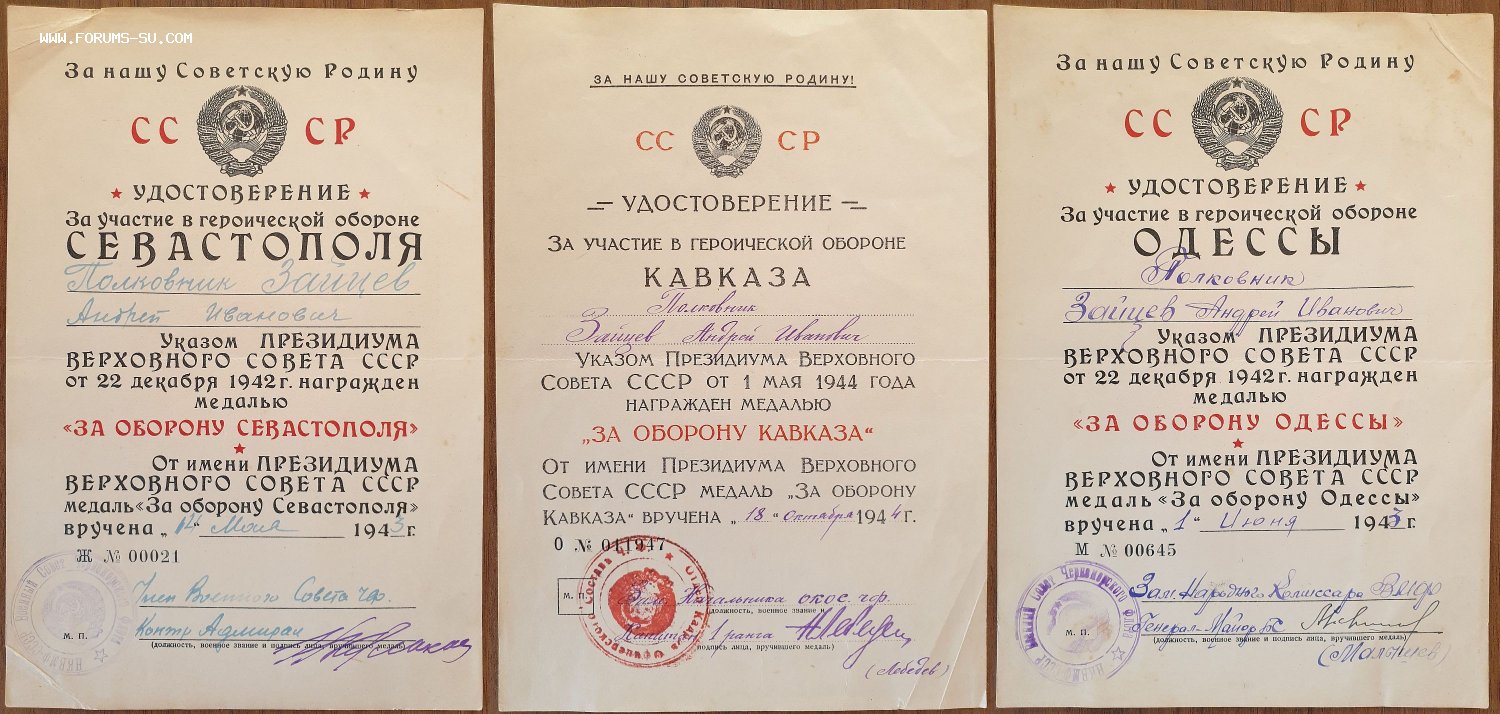 WWW.FORUMS-SU.COM
За нашу Советскую Родину
СС СР
УДОСТОВЕРЕНИЕ
За участие в героической обороне
СЕВАСТОПОЛЯ
Полковник Зайцев
Андрей Иванович
Указом ПРЕЗИДИУМА
ВЕРХОВНОГО СОВЕТА СССР
от 22 декабря 1942 г. награжден
медалью
«ЗА ОБОРОНУ СЕВАСТОПОЛЯ»
От имени ПРЕЗИДИУМА
ВЕРХОВНОГО СОВЕТА СССР
медаль «За оборону Севастополя»
вручена „14" Мая 1943 г.
Ж № 00021
Член Военного Совета ЧФ.
М. П. Контр Адмирал
(должность, военное звание и подпись лица, вручившего медаль)
ЗА НАШУ СОВЕТСКУЮ РОДИНУ!
СС СР
УДОСТОВЕРЕНИЕ
ЗА УЧАСТИЕ В ГЕРОИЧЕСКОЙ ОБОРОНЕ
КАВКАЗА
Полковник
Зайцев Андрей Иванович
УКАЗОМ ПРЕЗИДИУМА ВЕРХОВНОГО
СОВЕТА СССР ОТ 1 МАЯ 1944 ГОДА
НАГРАЖДЕН МЕДАЛЬЮ
„ЗА ОБОРОНУ КАВКАЗА“
ОТ ИМЕНИ ПРЕЗИДИУМА ВЕРХОВНОГО
СОВЕТА СССР МЕДАЛЬ „ЗА ОБОРОНУ
КАВКАЗА“ ВРУЧЕНА „18“ октября 1944 г.
О № 011947
М. П. Зам. Начальника окос. чф.
(должность, военное звание и
Капитан 1 ранга Лебедев
подпись лица, вручившего медаль)
(Лебедев)
За нашу Советскую Родину
СС СР
УДОСТОВЕРЕНИЕ
За участие в героической обороне
ОДЕССЫ
Полковник
Зайцев Андрей Иванович
Указом ПРЕЗИДИУМА
ВЕРХОВНОГО СОВЕТА СССР
от 22 декабря 1942 г. награжден
медалью
«ЗА ОБОРОНУ ОДЕССЫ»
От имени ПРЕЗИДИУМА
ВЕРХОВНОГО СОВЕТА СССР
медаль «За оборону Одессы»
вручена „1" Июня 1943 г.
М № 00645
Зам. Народного Комиссара ВМФ
М. П. Генерал-Майор
(должность, военное звание и подпись лица, вручившего медаль)
(Малышев)